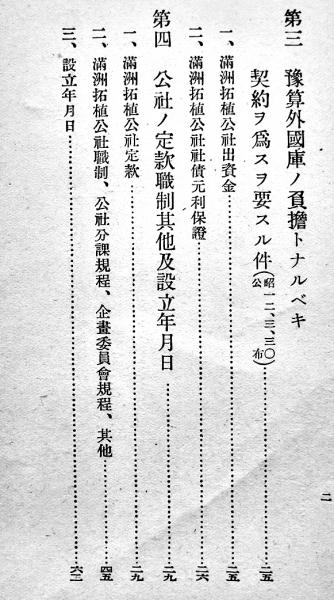 第三　豫算外國庫ノ負擔トナルベキ
契約ヲ爲スヲ要スル件（昭一二、三、三〇公布）……二五
一、滿洲拓植公社出資金……二五
二、滿洲拓植公社社債元利保證……二六
第四　公社ノ定款職制其他及設立年月日……二九
一、滿洲拓植公社定款……二九
二、滿洲拓植公社職制、公社分課規程、企畫委員會規程、其他……四五
三、設立年月日……六二
二